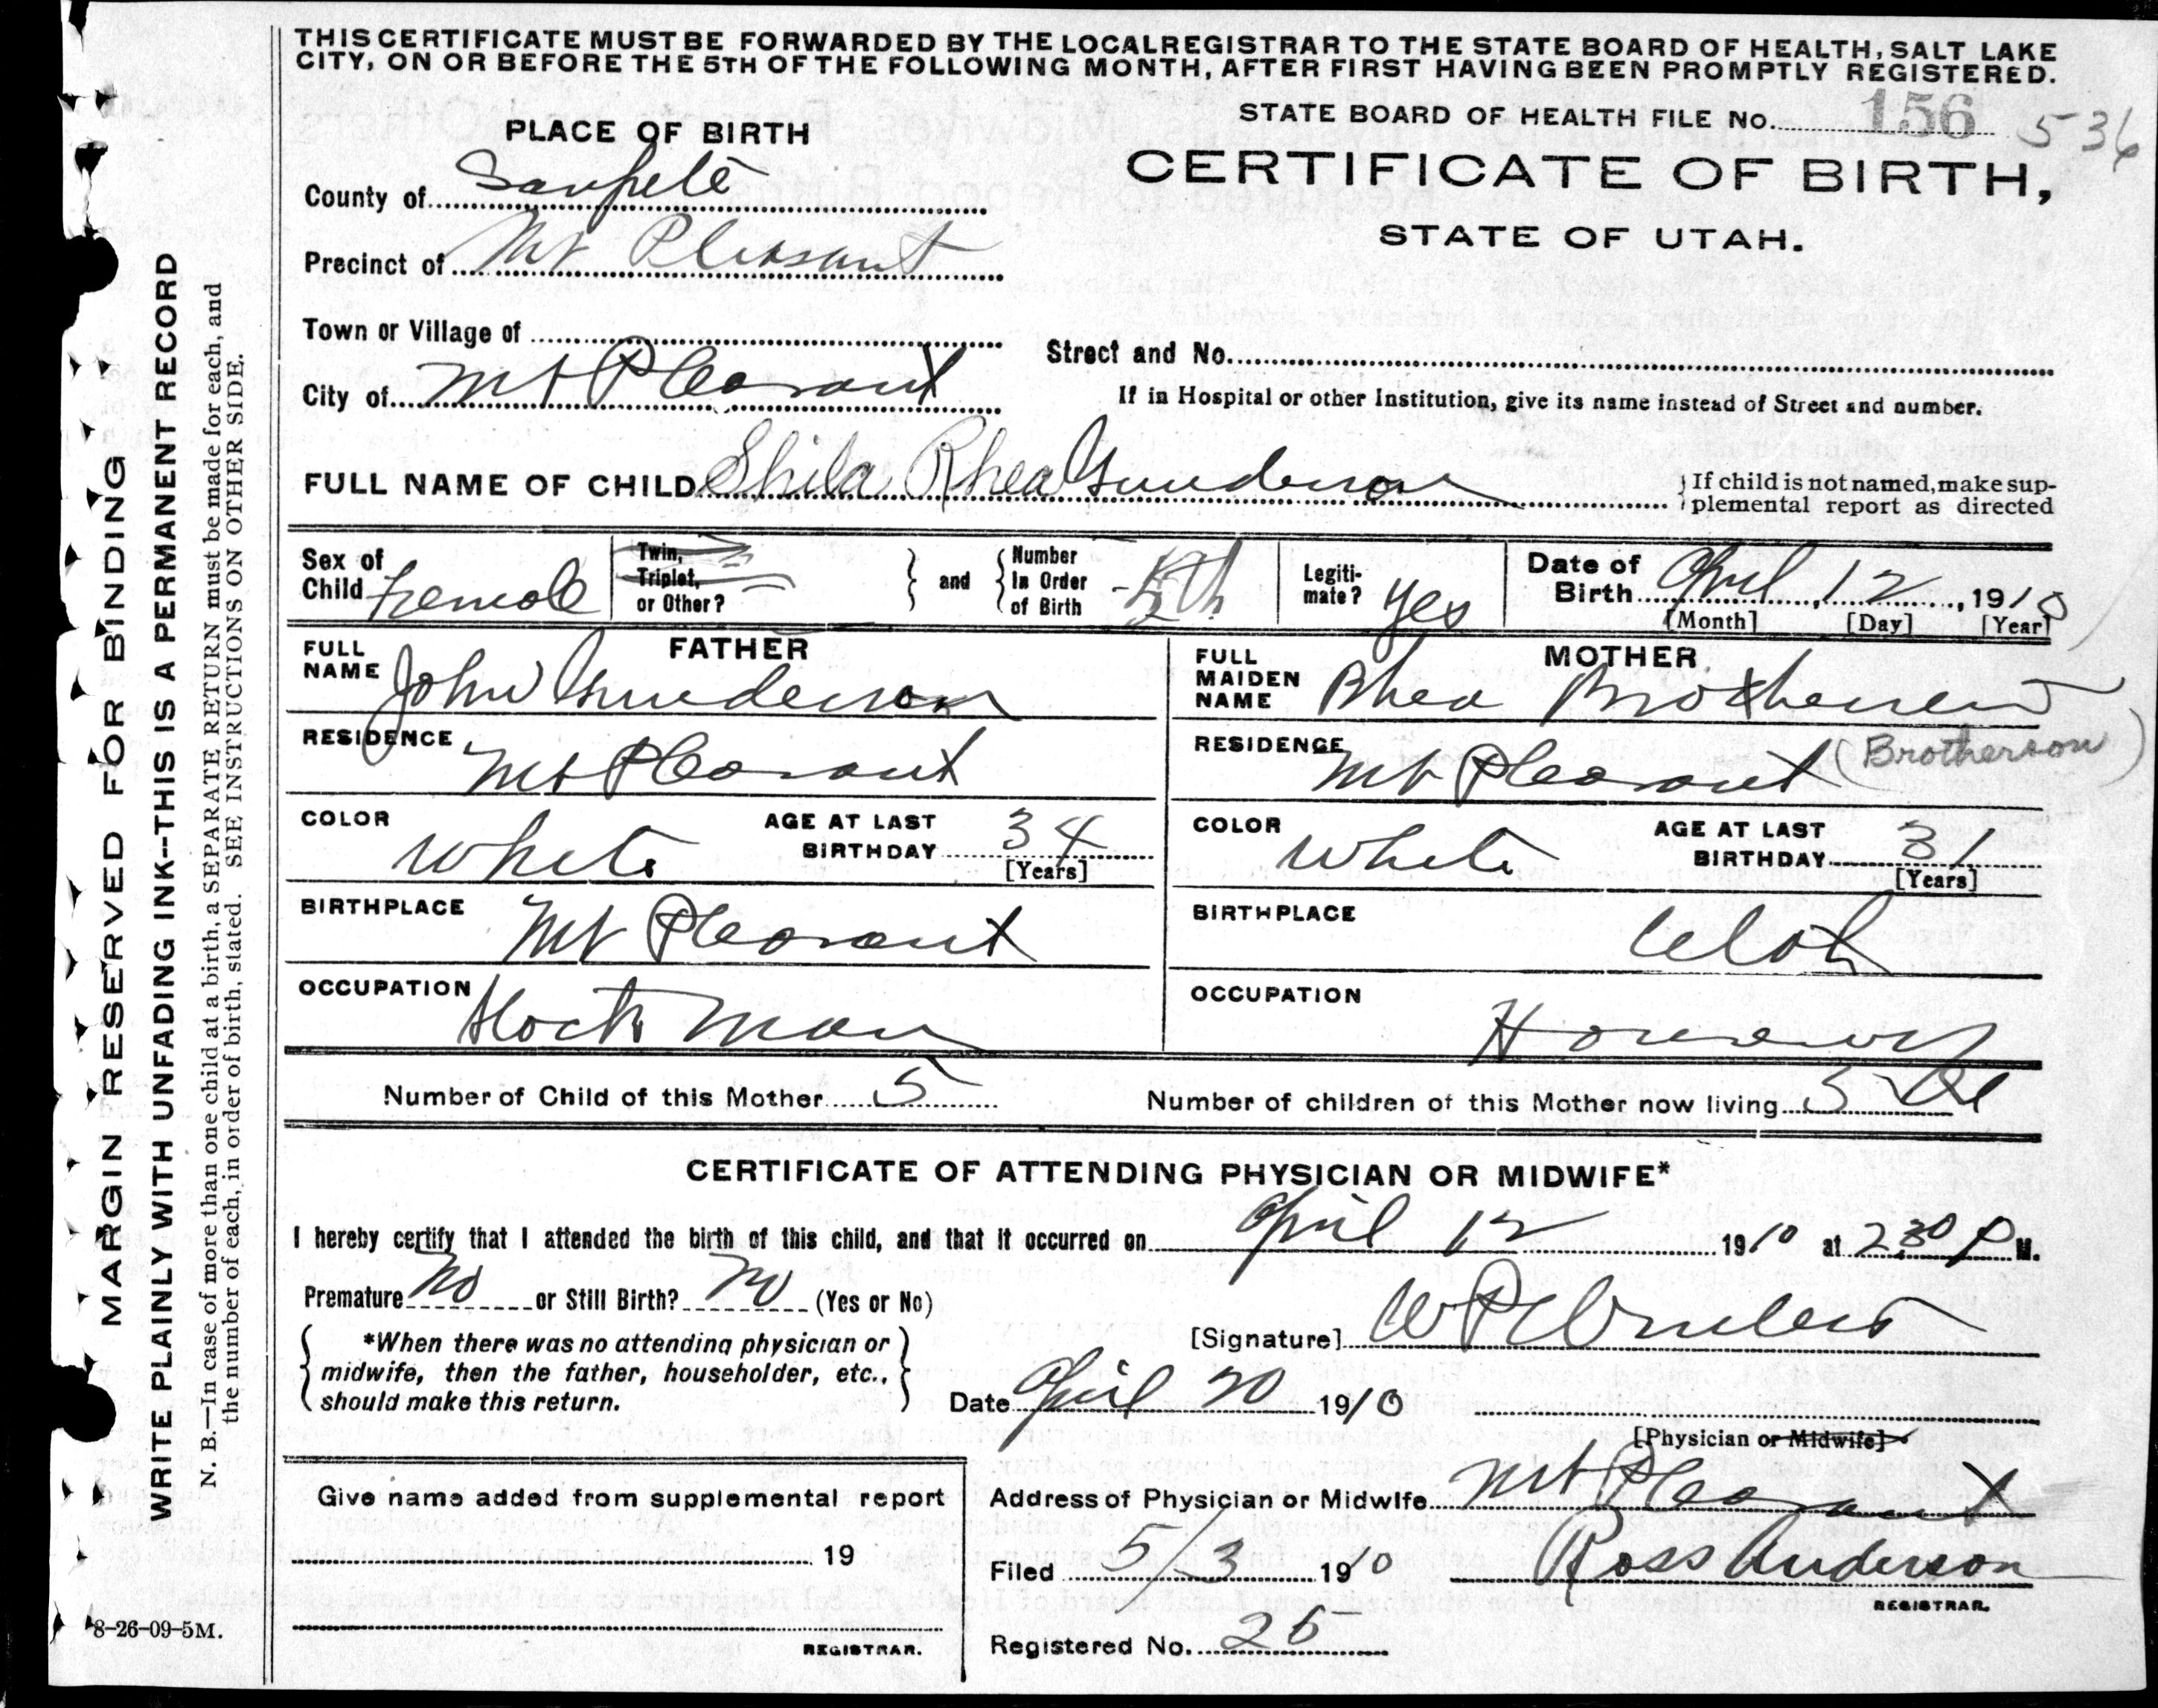 THIS CERTIFICATE MUST BE FORWARDED BY THE LOCAL REGISTRAR TO THE STATE BOARD OF HEALTH, SALT LAKE
CITY, ON OR BEFORE THE 5TH OF THE FOLLOWING MONTH, AFTER FIRST HAVING BEEN PROMPTLY REGISTERED.
STATE BOARD OF HEALTH FILE No. 156 536
PLACE OF BIRTH
CERTIFICATE OF BIRTH,
STATE OF UTAH.
County of Sanpete
Precinct of Mt Pleasant
Town or Village of
Street and No.
City of Mt Pleasant
If in Hospital or other Institution, give its name instead of Street and number.
FULL NAME OF CHILD Shila Rhea Gunderson
If child is not named, make sup-
plemental report as directed
Sex of Child Female
Twin, Triplet, or Other?
and Number In Order of Birth 5th
Legiti-mate? Yes
Date of Birth April, 12, 1910
[Month] [Day] [Year]
FATHER
FULL NAME John Gunderson
RESIDENCE Mt Pleasant
COLOR White AGE AT LAST BIRTHDAY 34
[Years]
BIRTHPLACE Mt Pleasant
OCCUPATION Stock man
MOTHER
FULL MAIDEN NAME Rhea
RESIDENCE Mt Pleasant (Brotherson)
COLOR White AGE AT LAST BIRTHDAY 31
[Years]
BIRTHPLACE Utah
OCCUPATION
Number of Child of this Mother 5
Number of children of this Mother now living 5
CERTIFICATE OF ATTENDING PHYSICIAN OR MIDWIFE*
I hereby certify that I attended the birth of this child, and that it occurred on April 12 1910 at 2:30 P M.
Premature No or Still Birth? No (Yes or No)
*When there was no attending physician or
midwife, then the father, householder, etc.,
should make this return.
[Signature]
Date April 20 1910
[Physician or Midwife]
Give name added from supplemental report
19
REGISTRAR.
Address of Physician or Midwife Mt Pleasant
Filed 5/3 1910 Ross Anderson
REGISTRAR.
Registered No. 25
MARGIN RESERVED FOR BINDING
WRITE PLAINLY WITH UNFADING INK--THIS IS A PERMANENT RECORD
N. B.—In case of more than one child at a birth, a SEPARATE RETURN must be made for each, and
the number of each, in order of birth, stated. SEE INSTRUCTIONS ON OTHER SIDE.
8-26-09-5M.